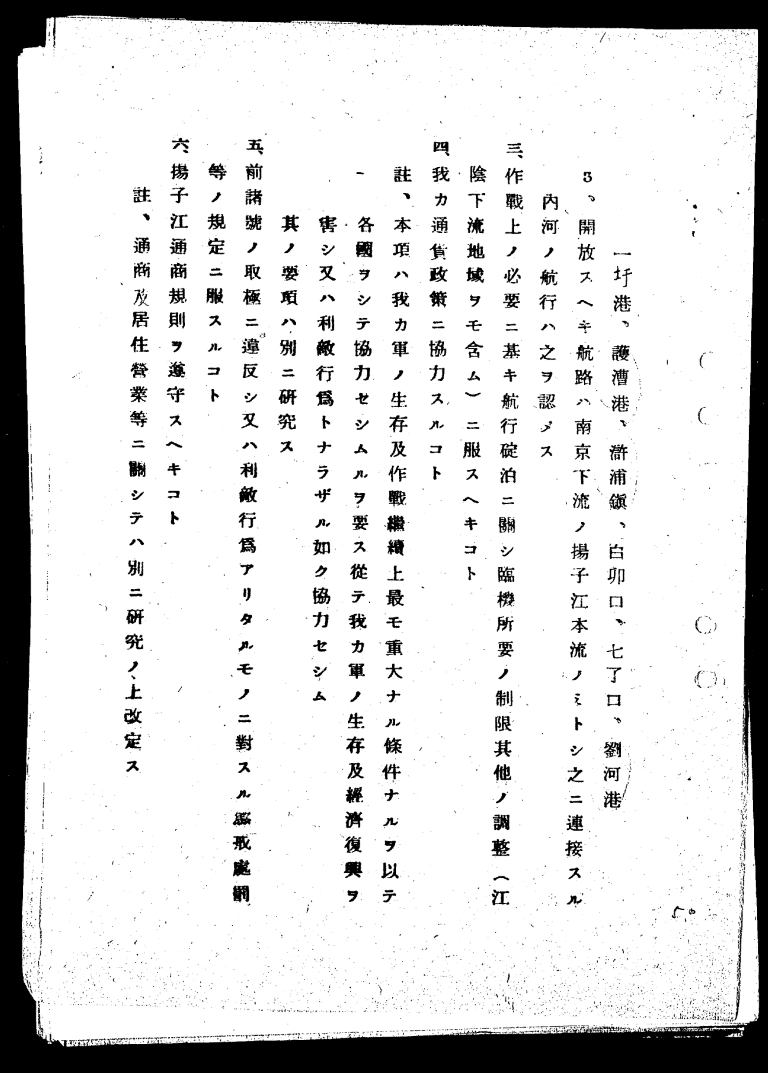 一圩港、護漕港、滸浦鎭、白卯口、七了口、劉河港
3、開放スヘキ航路ハ南京下流ノ揚子江本流ノミトシ之ニ連接スル
內河ノ航行ハ之ヲ認メス
三、作戰上ノ必要ニ基キ航行碇泊ニ關シ臨機所要ノ制限其他ノ調整(江
陰下流地域ヲモ含ム)ニ服スヘキコト
四、我カ通貨政策ニ協力スルコト
註、本項ハ我カ軍ノ生存及作戰繼續上最モ重大ナル條件ナルヲ以テ
各國ヲシテ協力セシムルヲ要ス從テ我カ軍ノ生存及經濟復興ヲ
害シ又ハ利敵行爲トナラザル如ク協力セシム
其ノ要項ハ別ニ硏究ス
五、前諸號ノ取極ニ違反シ又ハ利敵行爲アリタルモノニ對スル處罰
等ノ規定ニ服スルコト
六、揚子江通商規則ヲ遵守スヘキコト
註、通商及居住營業等ニ關シテハ別ニ硏究ノ上改定ス
50